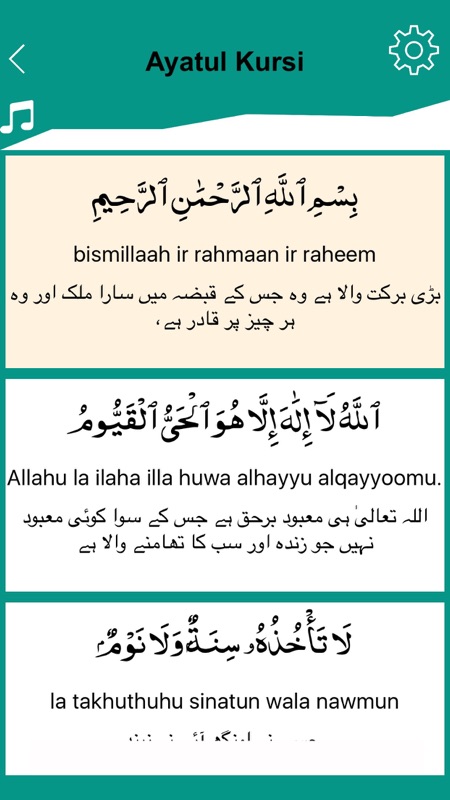 Ayatul Kursi
بِسْمِ ٱللَّهِ ٱلرَّحْمَٰنِ ٱلرَّحِيمِ
bismillaah ir rahmaan ir raheem
بڑی برکت والا ہے وہ جس کے قبضہ میں سارا ملک اور وہ
ہر چیز پر قادر ہے،
ٱللَّهُ لَآ إِلَٰهَ إِلَّا هُوَ ٱلْحَىُّ ٱلْقَيُّومُ
Allahu la ilaha illa huwa alhayyu alqayyoomu.
اللہ تعالیٰ ہی معبود برحق ہے جس کے سوا کوئی معبود
نہیں جو زندہ اور سب کا تھامنے والا ہے
لَا تَأْخُذُهُۥ سِنَةٌ وَلَا نَوْمٌ ۚ
la takhuthuhu sinatun wala nawmun